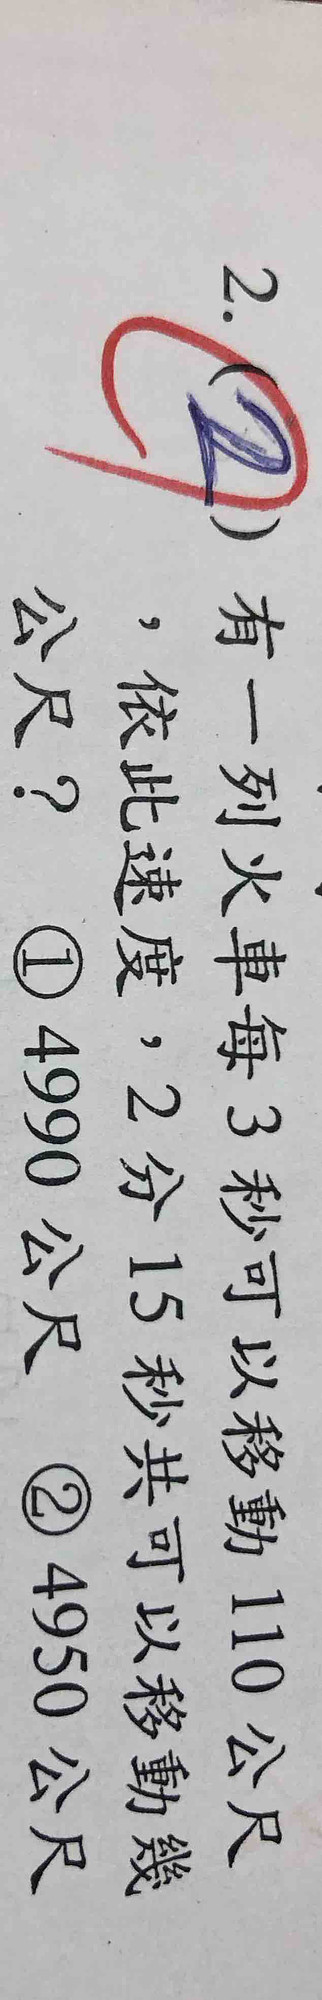 2. (2) 有一列火車每3秒可以移動110公尺
，依此速度，2分15秒共可以移動幾
公尺？ ①4990公尺 ②4950公尺